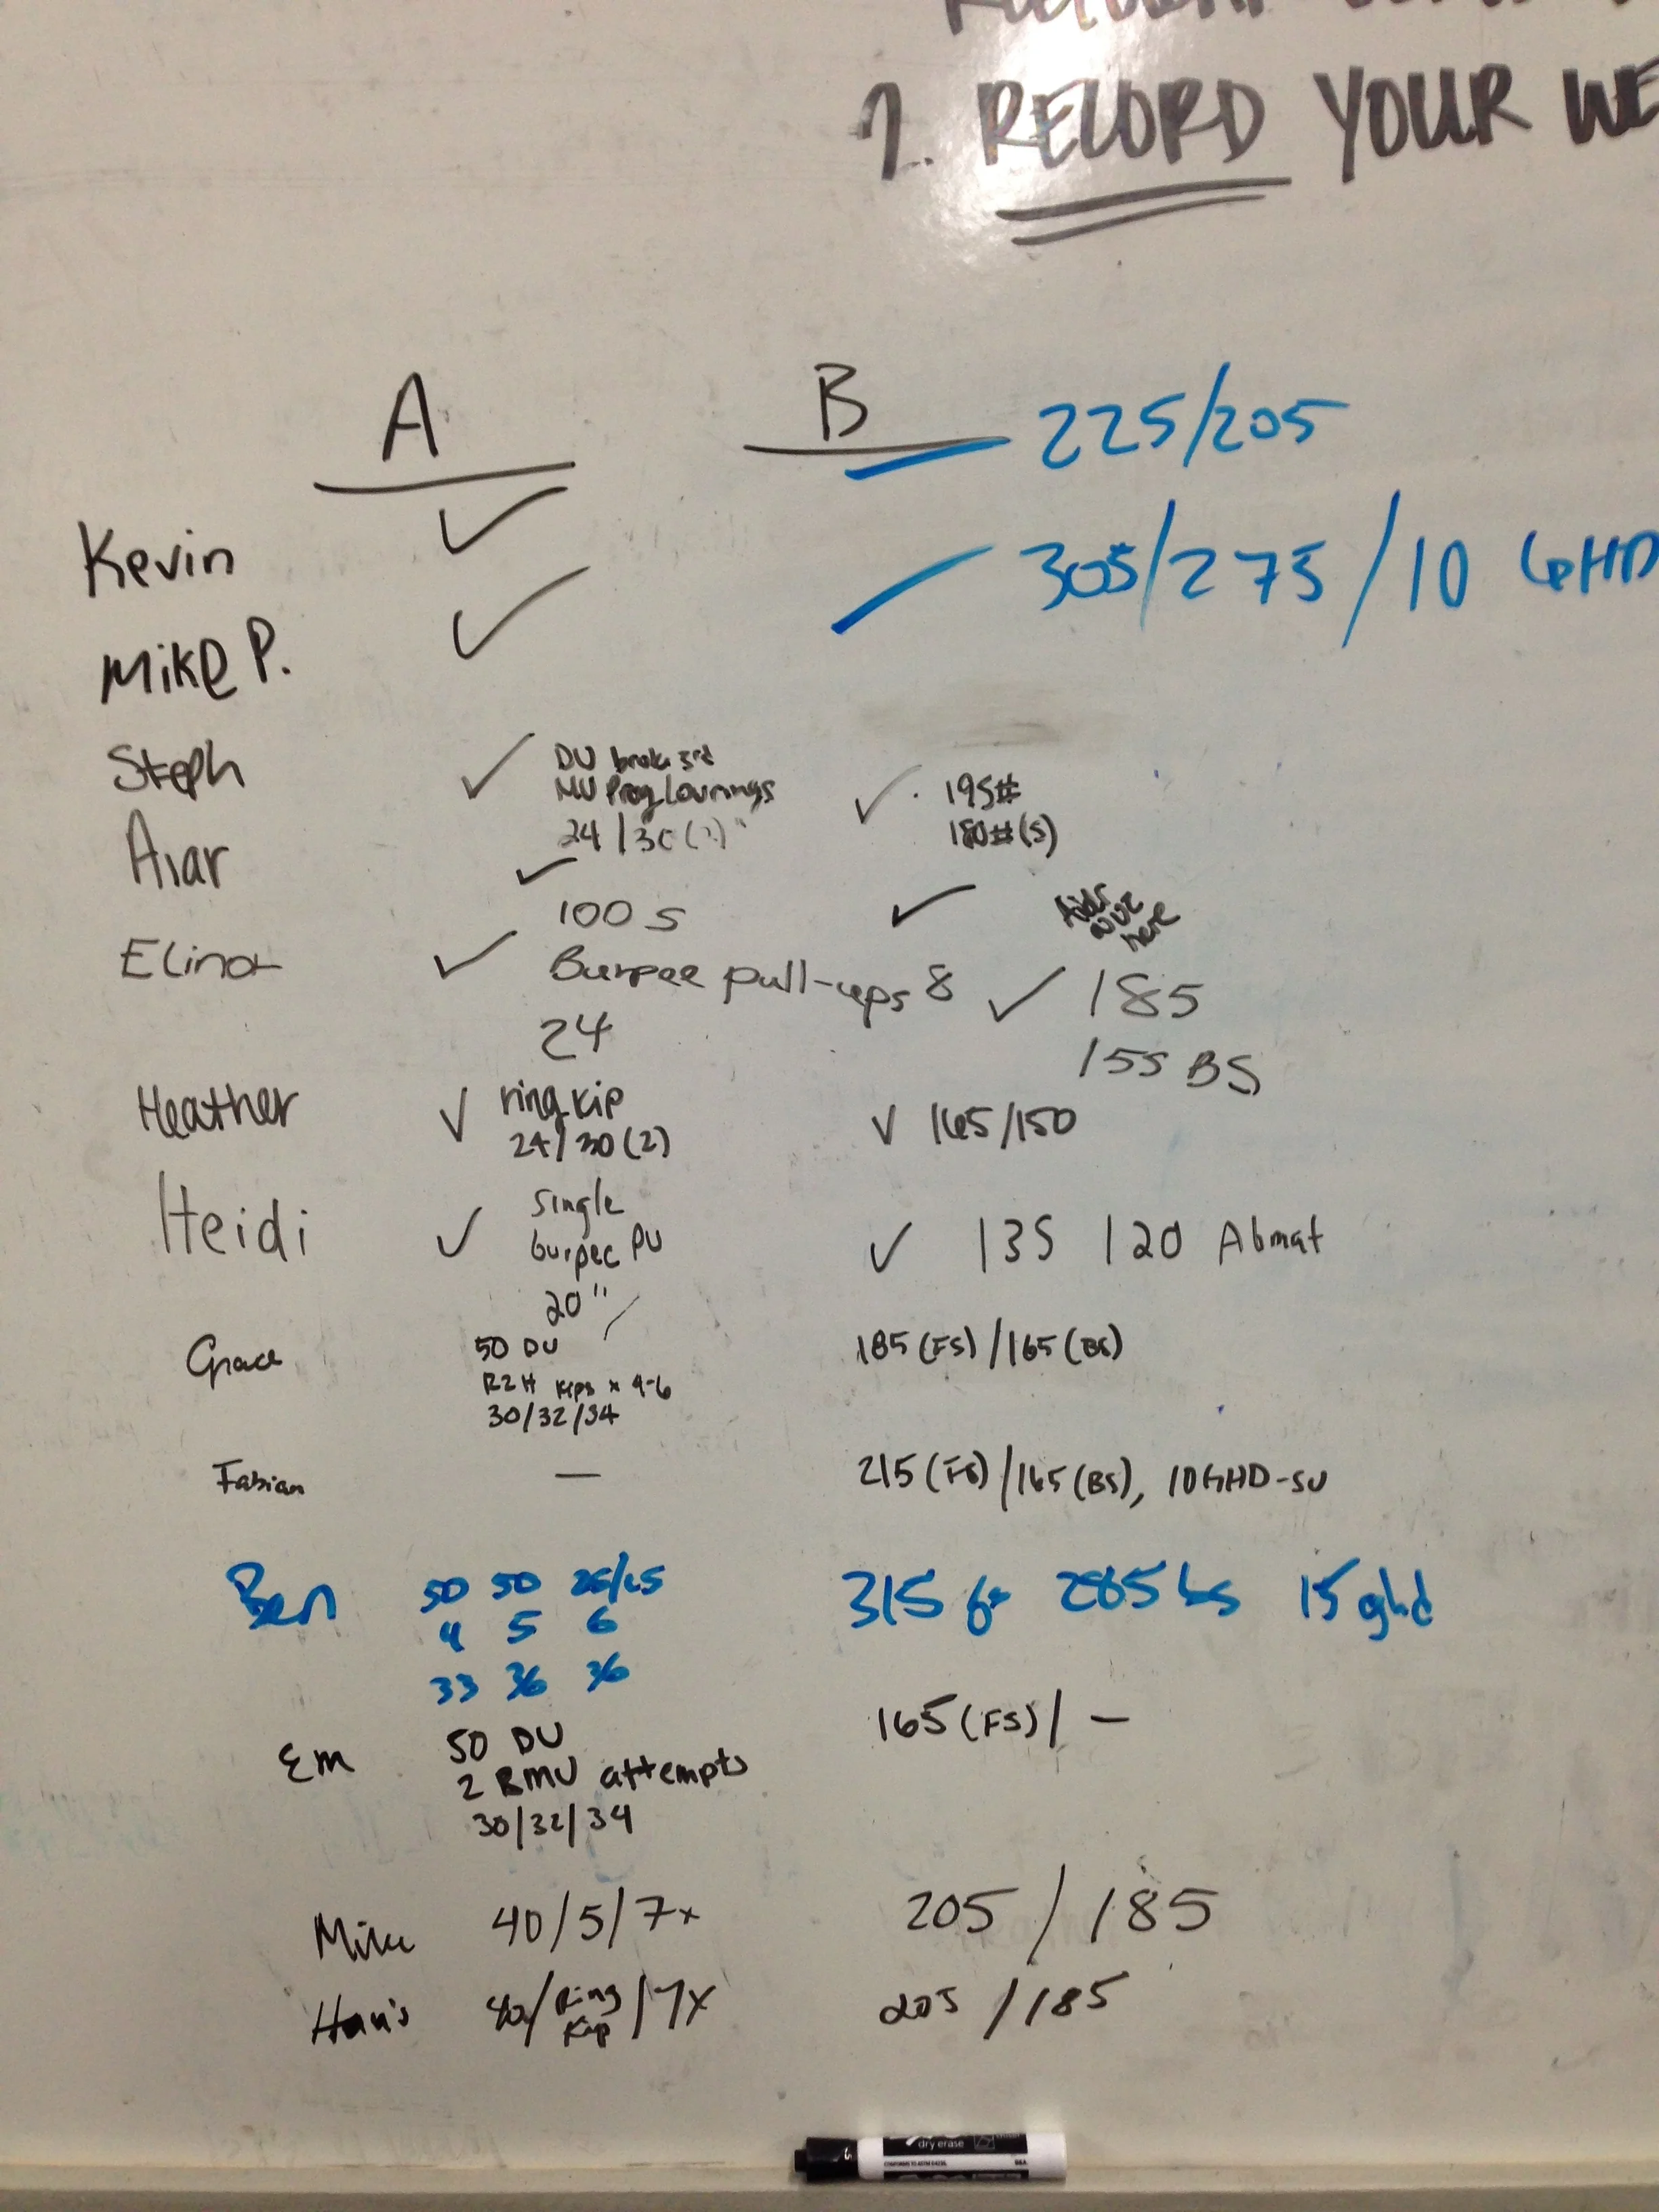 7. RECORD YOUR WE
A B 225/205
Kevin ✓ 305/275/10 GHD
Mike P. ✓
Steph ✓ DU broke 3rd ✓ 195#
MU Prog 180#(5)
24/30
Aiar ✓ ✓ here
100 s
Elinor ✓ Burpee pull-ups 8 ✓ 185
24 155 BS
Heather ✓ ring kip ✓ 165/150
24/30(2)
Heidi ✓ single ✓ 135 120 Abmat
burpee PU
20"
Grace 50 DU 185(FS)/165(BS)
R2H kips x 4-6
30/32/34
Fabian — 215(FS)/165(BS), 10GHD-SU
Ben 50 50 25/25 315 fs 285 bs 15 ghd
4 5 6
33 36 36
Em 50 DU 165(FS)/ —
2 RMU attempts
30/32/34
Mike 40/5/7x 205/185
Ring /7x 205/185
Kip
dry erase